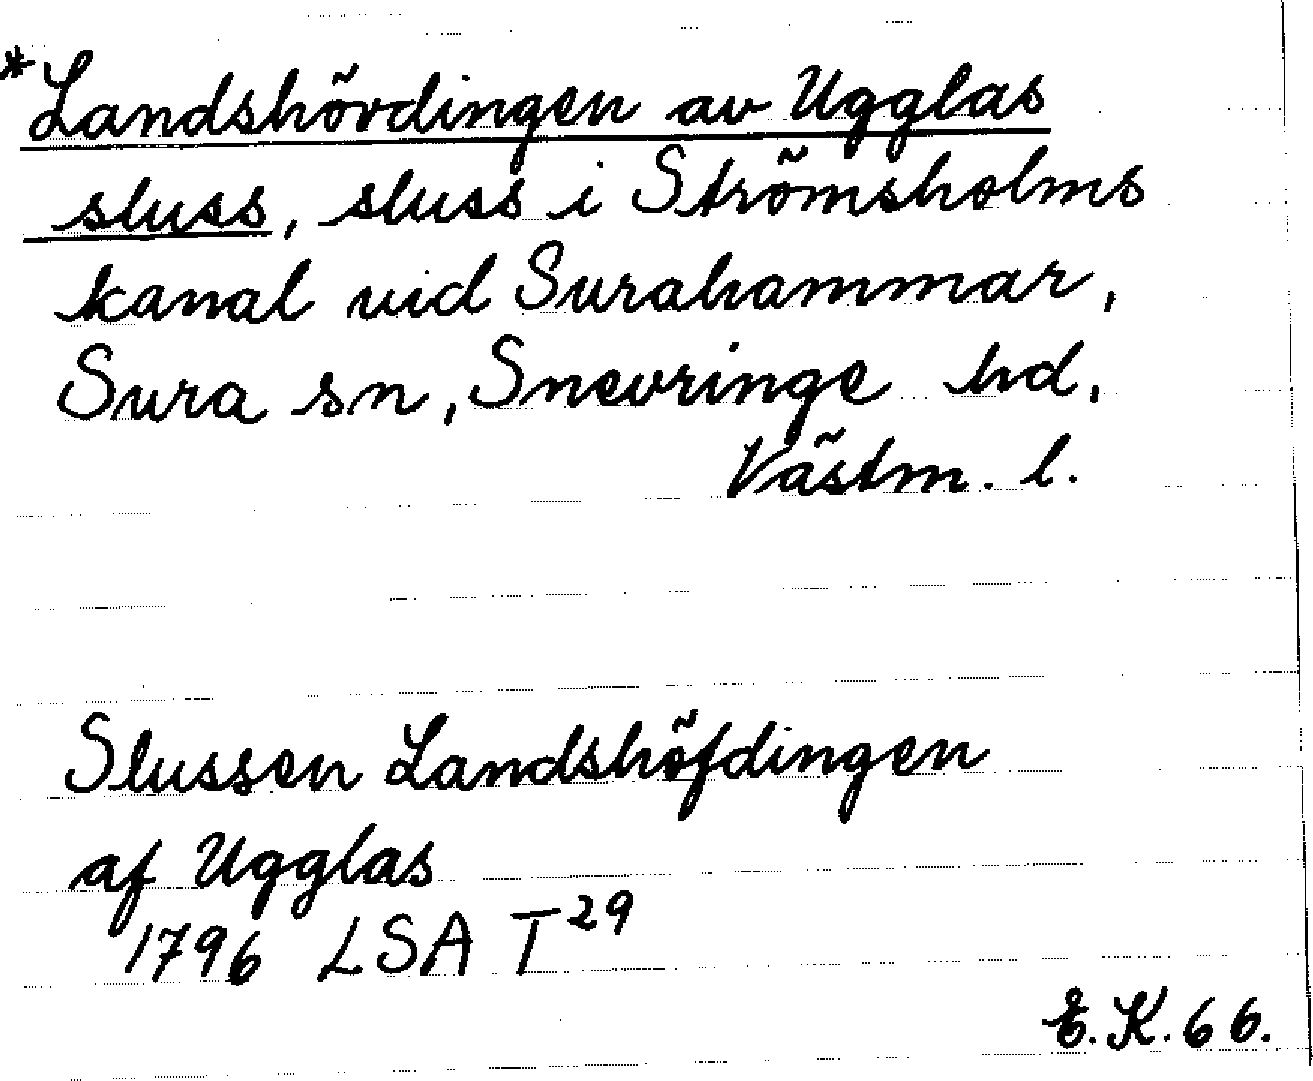 *Landshövdingen av Ugglas
sluss, sluss i Strömsholms
kanal vid Surahammar,
Sura sn, Snevringe hd,
Västm. l.
Slussen Landshöfdingen
af Ugglas
1796 LSA T29
E.K.66.